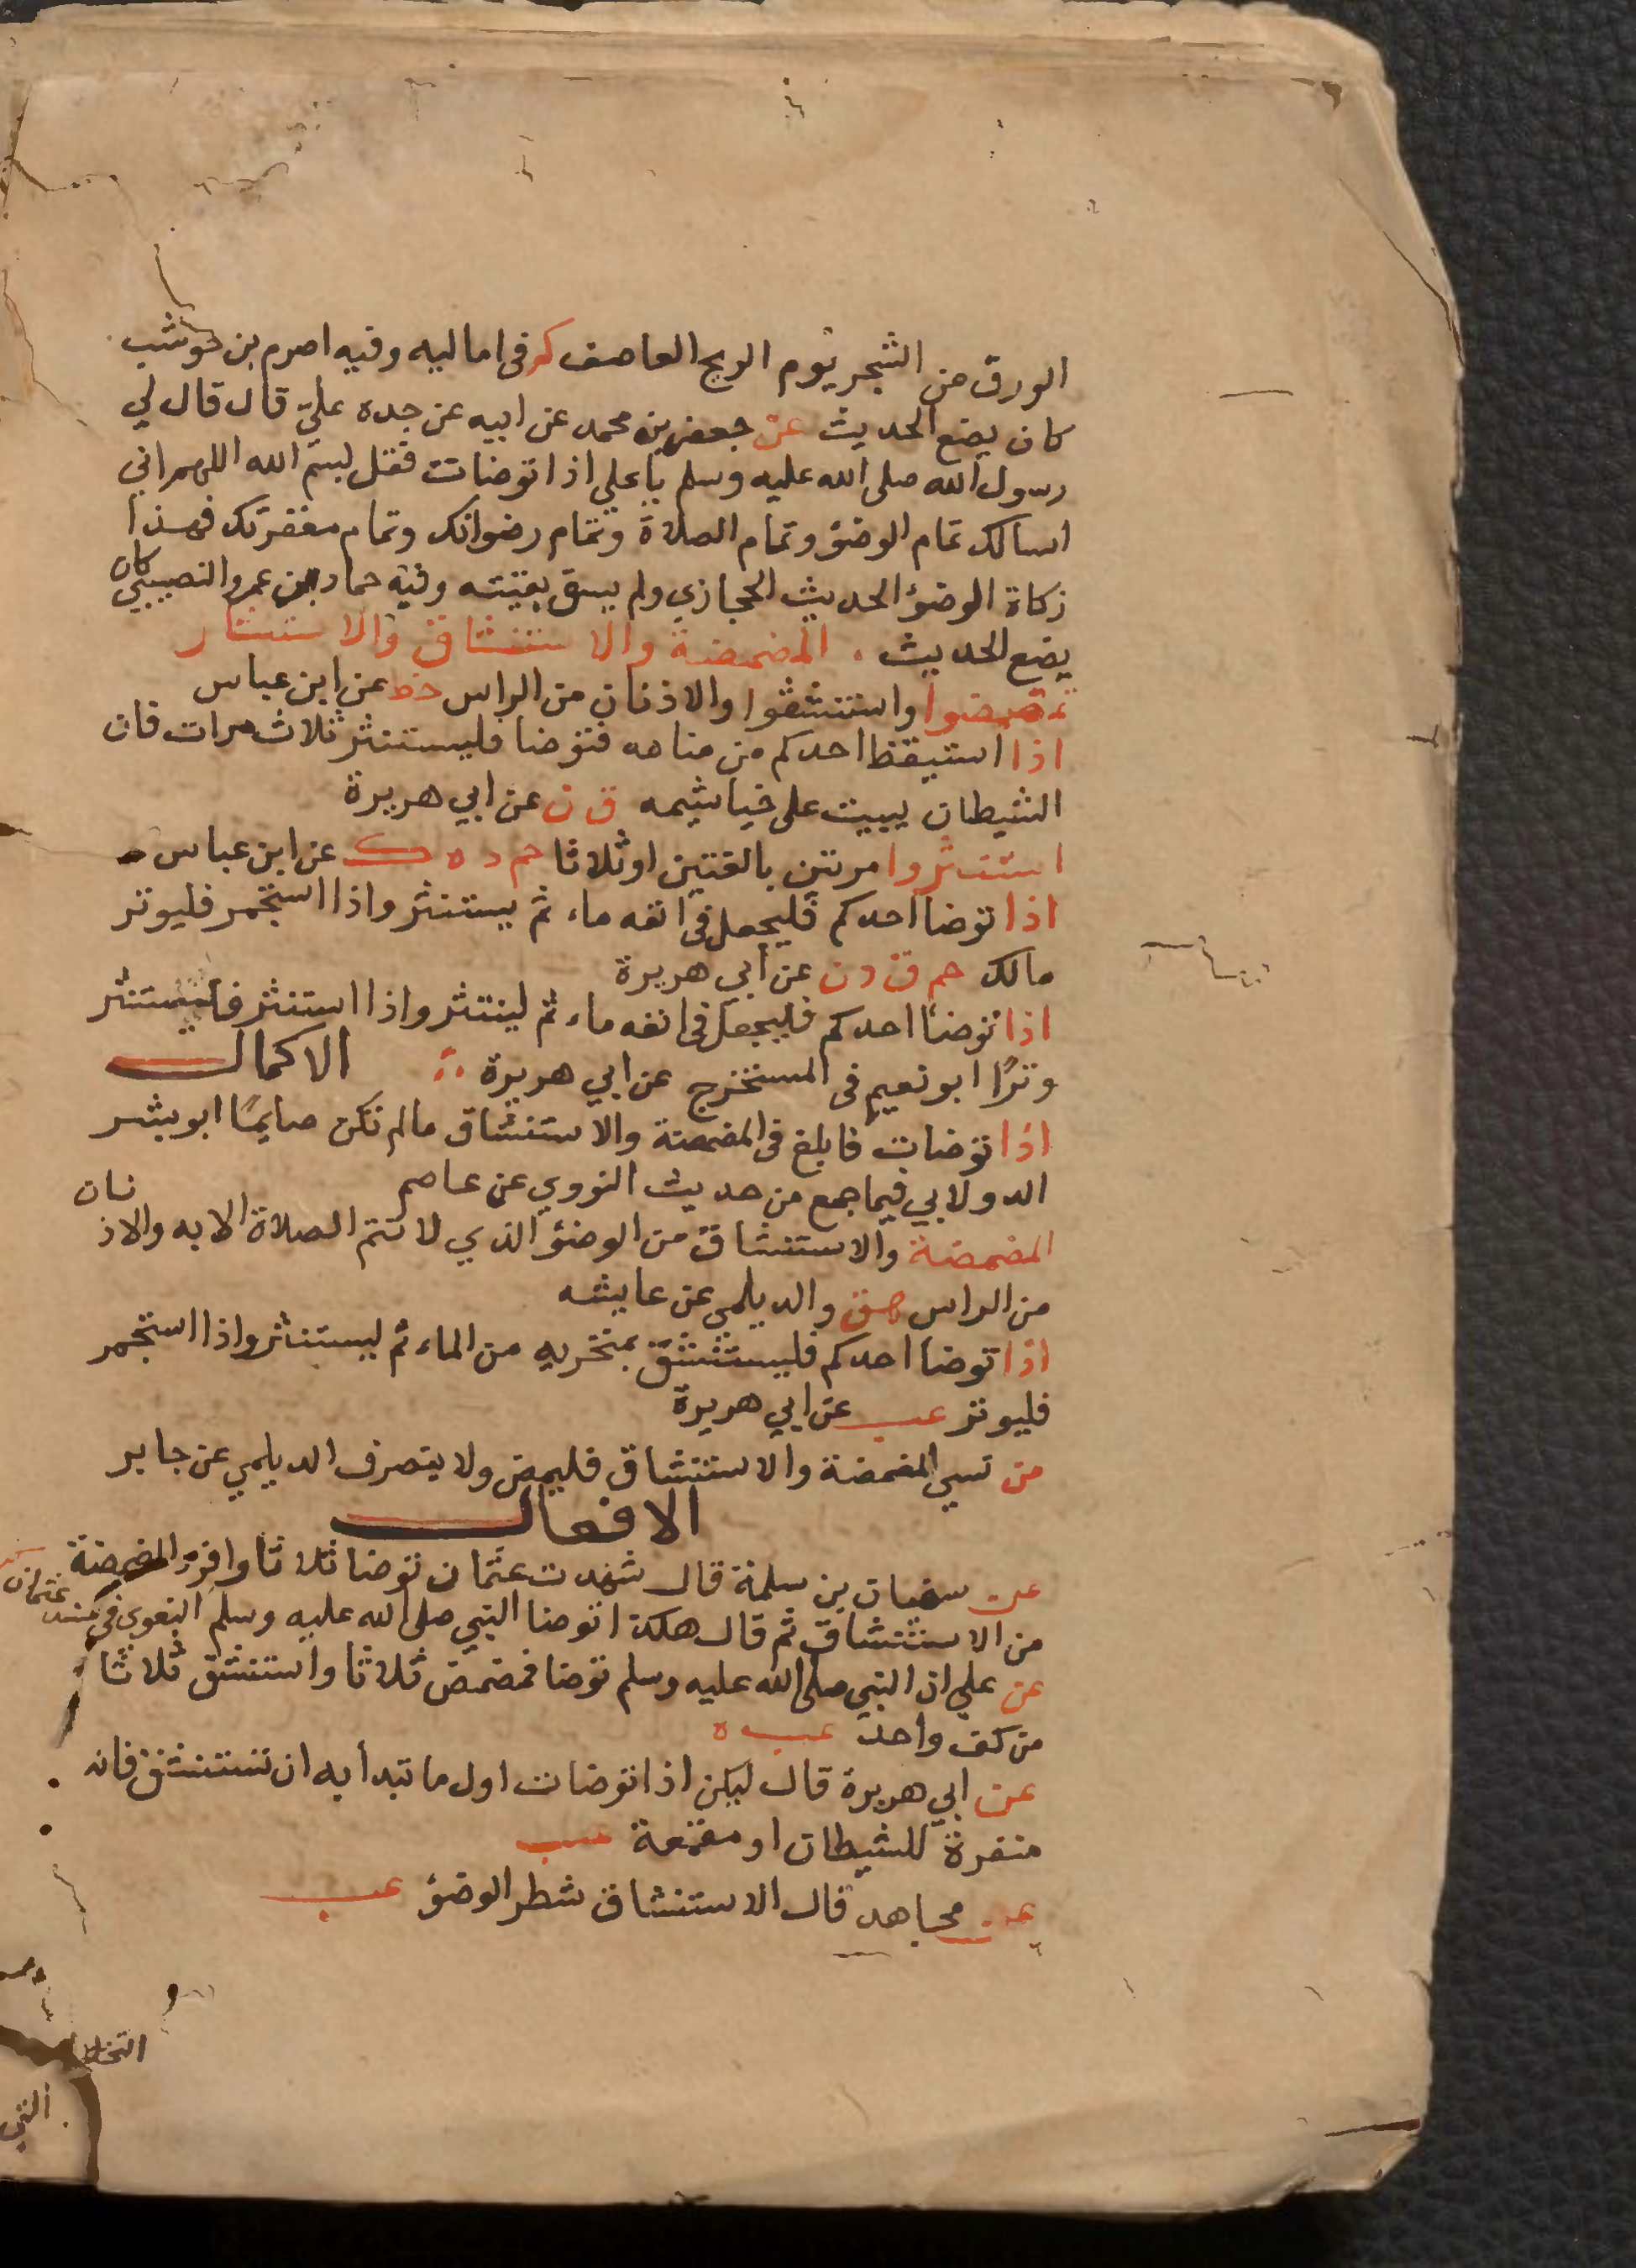 الورق من الشجر يوم الريح العاصف كر في اماليه وفيه اصرم بن حوشب
كان يضع الحديث عن جعفر بن محمد عن ابيه عن جده علي قال قال لي
رسول الله صلى الله عليه وسلم يا علي اذا توضات فقل بسم الله اللهم اني
اسالك تمام الوضؤ وتمام الصلاة وتمام رضوانك وتمام مغفرتك فهذا
زكاة الوضؤ الحديث الحجازي ولم يسق بقيته وفيه حماد بن عمرو النصيبي كان
يضع الحديث . المضمضة والاستنشاق والاستنثار
تمضمضوا واستنشقوا والاذنان من الراس خط عن ابن عباس
اذا استيقظ احدكم من منامه فتوضا فليستنثر ثلاث مرات فان
الشيطان يبيت على خياشيمه ق ن عن ابي هريرة
استنثروا مرتين بالغتين او ثلاثا حم د ه ك عن ابن عباس
اذا توضا احدكم فليجعل في انفه ماء ثم يستنثر واذا استجمر فليوتر
مالك حم ق د ن عن ابي هريرة
اذا توضا احدكم فليجعل في انفه ماء ثم لينتثر واذا استنثر فليستنثر
وترًا ابو نعيم في المستخرج عن ابي هريرة الاكمال
اذا توضات فابلغ في المضمضة والاستنشاق مالم تكن صايمًا ابو بشر
الدولابي فيما جمع من حديث الثوري عن عاصم
المضمضة والاستنشاق من الوضؤ الذي لا تتم الصلاة الا به والاذنان
من الراس هق والديلمي عن عايشه
اذا توضا احدكم فليستنشق بمنخريه من الماء ثم ليستنثر واذا استجمر
فليوتر عب عن ابي هريرة
من نسي المضمضة والاستنشاق فليمض ولا ينصرف الديلمي عن جابر
الافعال
عن سفيان بن سلمة قال شهدت عثمان توضا ثلاثا وافرد المضمضة
من الاستنشاق ثم قال هكذا توضا النبي صلى الله عليه وسلم البغوي في مسند عثمان
عن علي ان النبي صلى الله عليه وسلم توضا فمضمض ثلاثا واستنشق ثلاثا
من كف واحد عب ه
عن ابي هريرة قال ليكن اذا توضات اول ما تبدأ به ان تستنشق فانه
منفرة للشيطان او مقمعة عب
عن مجاهد قال الاستنشاق شطر الوضؤ عب